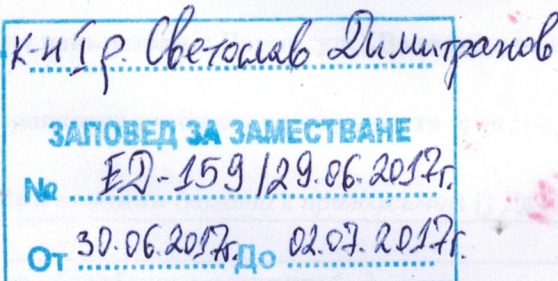 к-н I р. Светослав Димитранов
ЗАПОВЕД ЗА ЗАМЕСТВАНЕ
№ ЕД-159 / 29.06.2017г.
От 30.06.2017г. До 02.07.2017г.